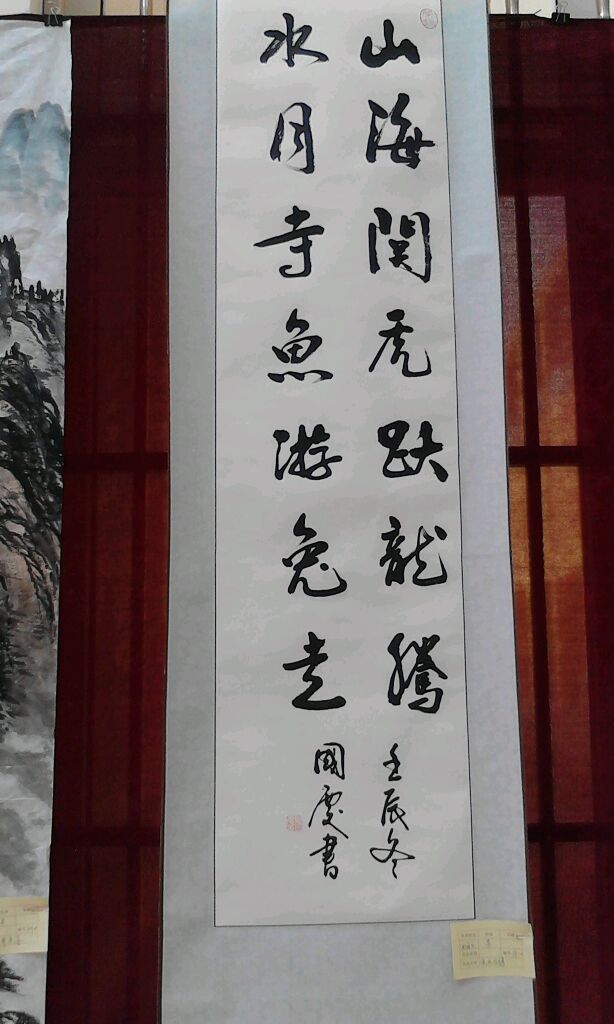 山海関虎趺龍騰
水月寺魚游兔走
壬辰冬
國慶書